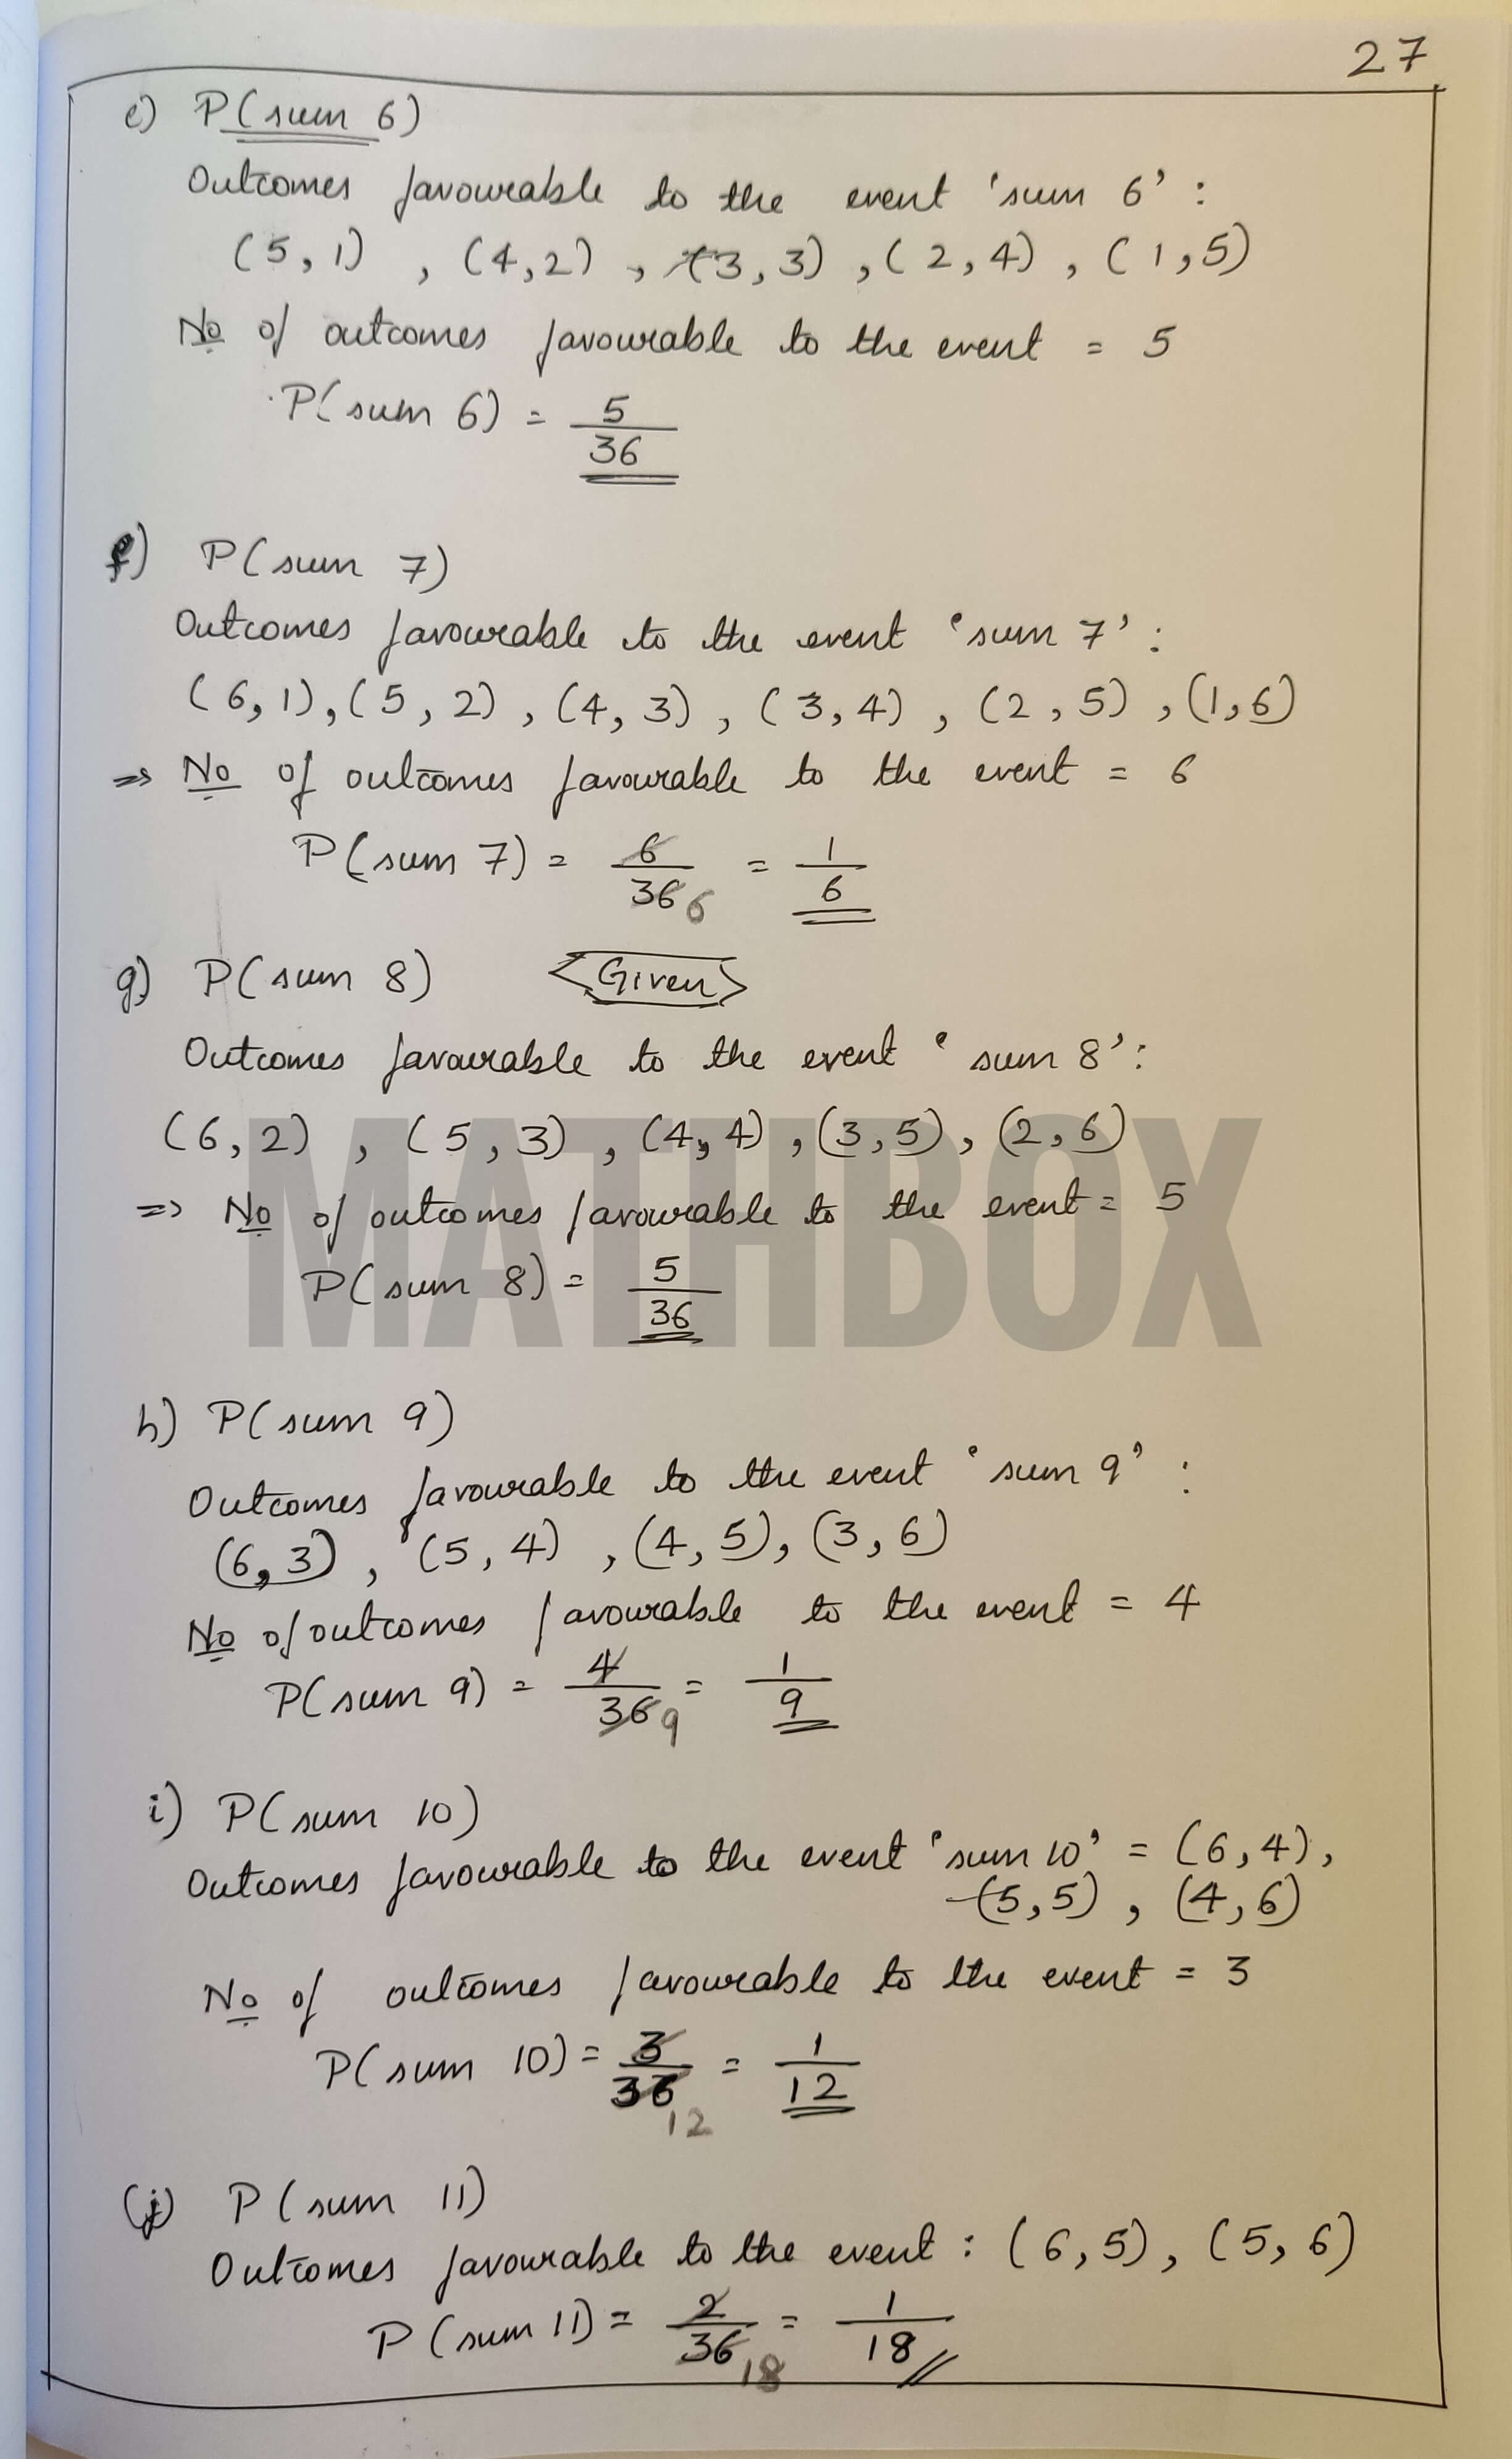 27
e) P(sum 6)
Outcomes favourable to the event 'sum 6' :
(5,1) , (4,2) , (3,3) , (2,4) , (1,5)
No of outcomes favourable to the event = 5
P(sum 6) = 5/36
f) P(sum 7)
Outcomes favourable to the event 'sum 7' :
(6,1), (5,2) , (4,3) , (3,4) , (2,5) , (1,6)
=> No of outcomes favourable to the event = 6
P(sum 7) = 6/36 6 = 1/6
g) P(sum 8) Given
Outcomes favourable to the event 'sum 8' :
(6,2) , (5,3) , (4,4) , (3,5) , (2,6)
MATHBOX
=> No of outcomes favourable to the event = 5
P(sum 8) = 5/36
h) P(sum 9)
Outcomes favourable to the event 'sum 9' :
(6,3) , (5,4) , (4,5), (3,6)
No of outcomes favourable to the event = 4
P(sum 9) = 4/36 9 = 1/9
i) P(sum 10)
Outcomes favourable to the event 'sum 10' = (6,4),
(5,5) , (4,6)
No of outcomes favourable to the event = 3
P(sum 10) = 3/36 12 = 1/12
(j) P(sum 11)
Outcomes favourable to the event : (6,5), (5,6)
P(sum 11) = 2/36 18 = 1/18 //